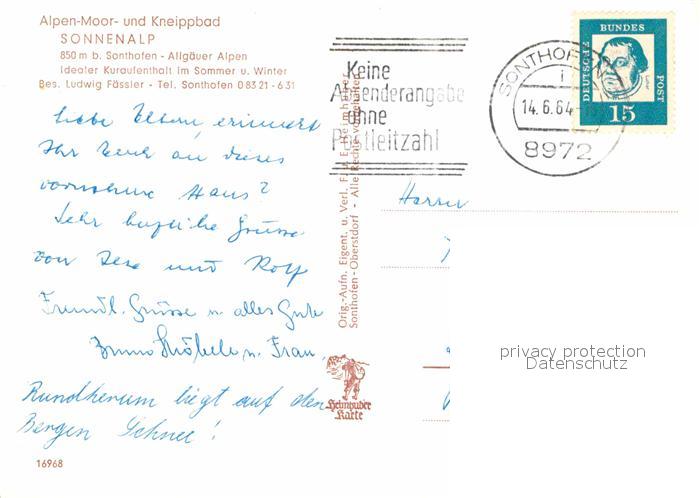 Alpen-Moor- und Kneippbad
SONNENALP
850 m b. Sonthofen - Allgäuer Alpen
Idealer Kuraufenthalt im Sommer u. Winter
Bes. Ludwig Fässler - Tel. Sonthofen 0 83 21 - 6 31
Liebe Eltern, erinnert
Ihr Euch an dieses
vornehme Haus?
Sehr herzliche Grüsse
von und Rolf
Freundl. Grüsse u. alles Gute
Bruno Ströbele u. Frau
Rundherum liegt auf den
Bergen Schnee!
16968
Orig.-Aufn. Eigent. u. Verl. F. u. E. Heimhuber
Sonthofen-Oberstdorf - Alle Rechte vorbehalten
Heimhuber
Karte
Keine
Absenderangabe
ohne
Postleitzahl
SONTHOFEN
14.6.64
8972
DEUTSCHE
BUNDES
POST
Luther
15
Herrn
privacy protection
Datenschutz